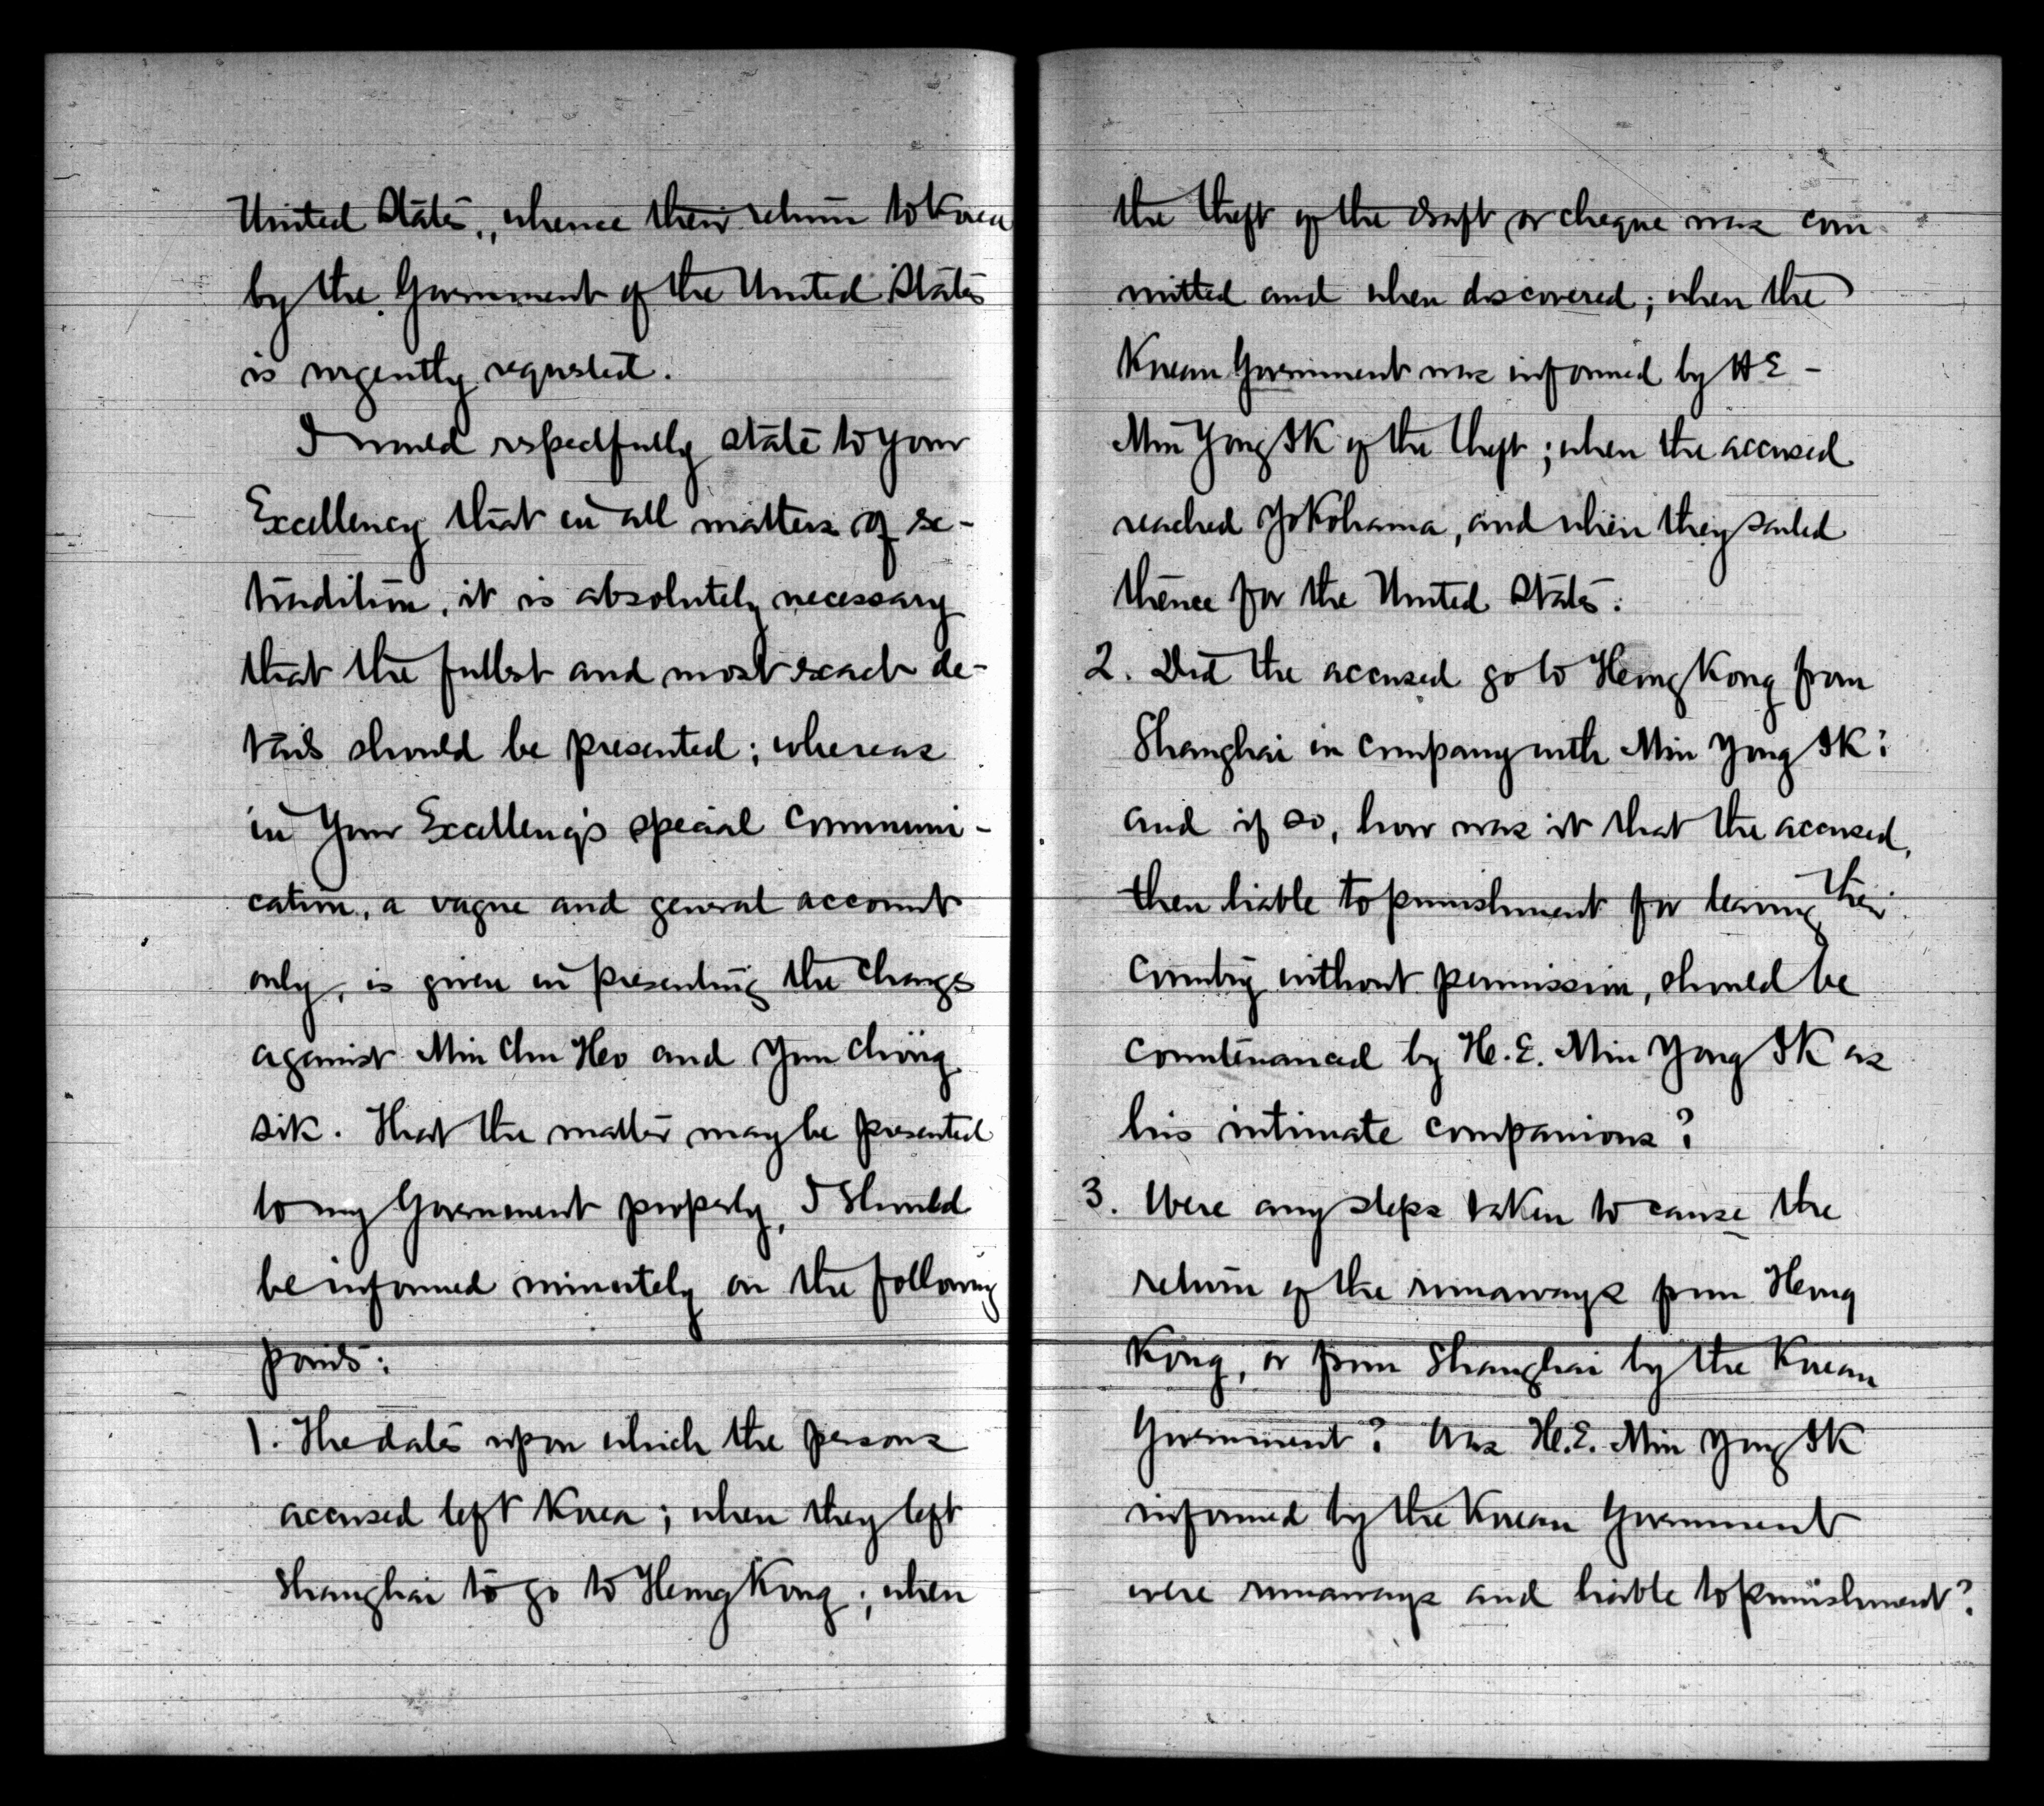 United States, whence their return to Korea
by the Government of the United States
is urgently requested.
I would respectfully state to Your
Excellency that in all matters of ex-
tradition, it is absolutely necessary
that the fullest and most exact de-
tails should be presented; whereas
in Your Excellency's special communi-
cation, a vague and general account
only, is given in presenting the charges
against Min Chu Ho and Yun Chöng
sik. That the matter may be presented
to my Government properly, I should
be informed minutely on the following
points:
1. The dates upon which the persons
accused left Korea; when they left
Shanghai to go to Hong Kong; when
the theft of the draft or cheque was com
mitted and when discovered; when the
Korean Government was informed by H E -
Min Yong Ik of the theft; when the accused
reached Yokohama, and when they sailed
thence for the United States.
2. Did the accused go to Hong Kong from
Shanghai in company with Min Yong Ik:
and if so, how was it that the accused,
then liable to punishment for leaving their
Country without permission, should be
countenanced by H. E. Min Yong Ik as
his intimate companions?
3. Were any steps taken to cause the
return of the runaways from Hong
Kong, or from Shanghai by the Korean
Government? Was H. E. Min Yong Ik
informed by the Korean Government
were runaways and liable to punishment?